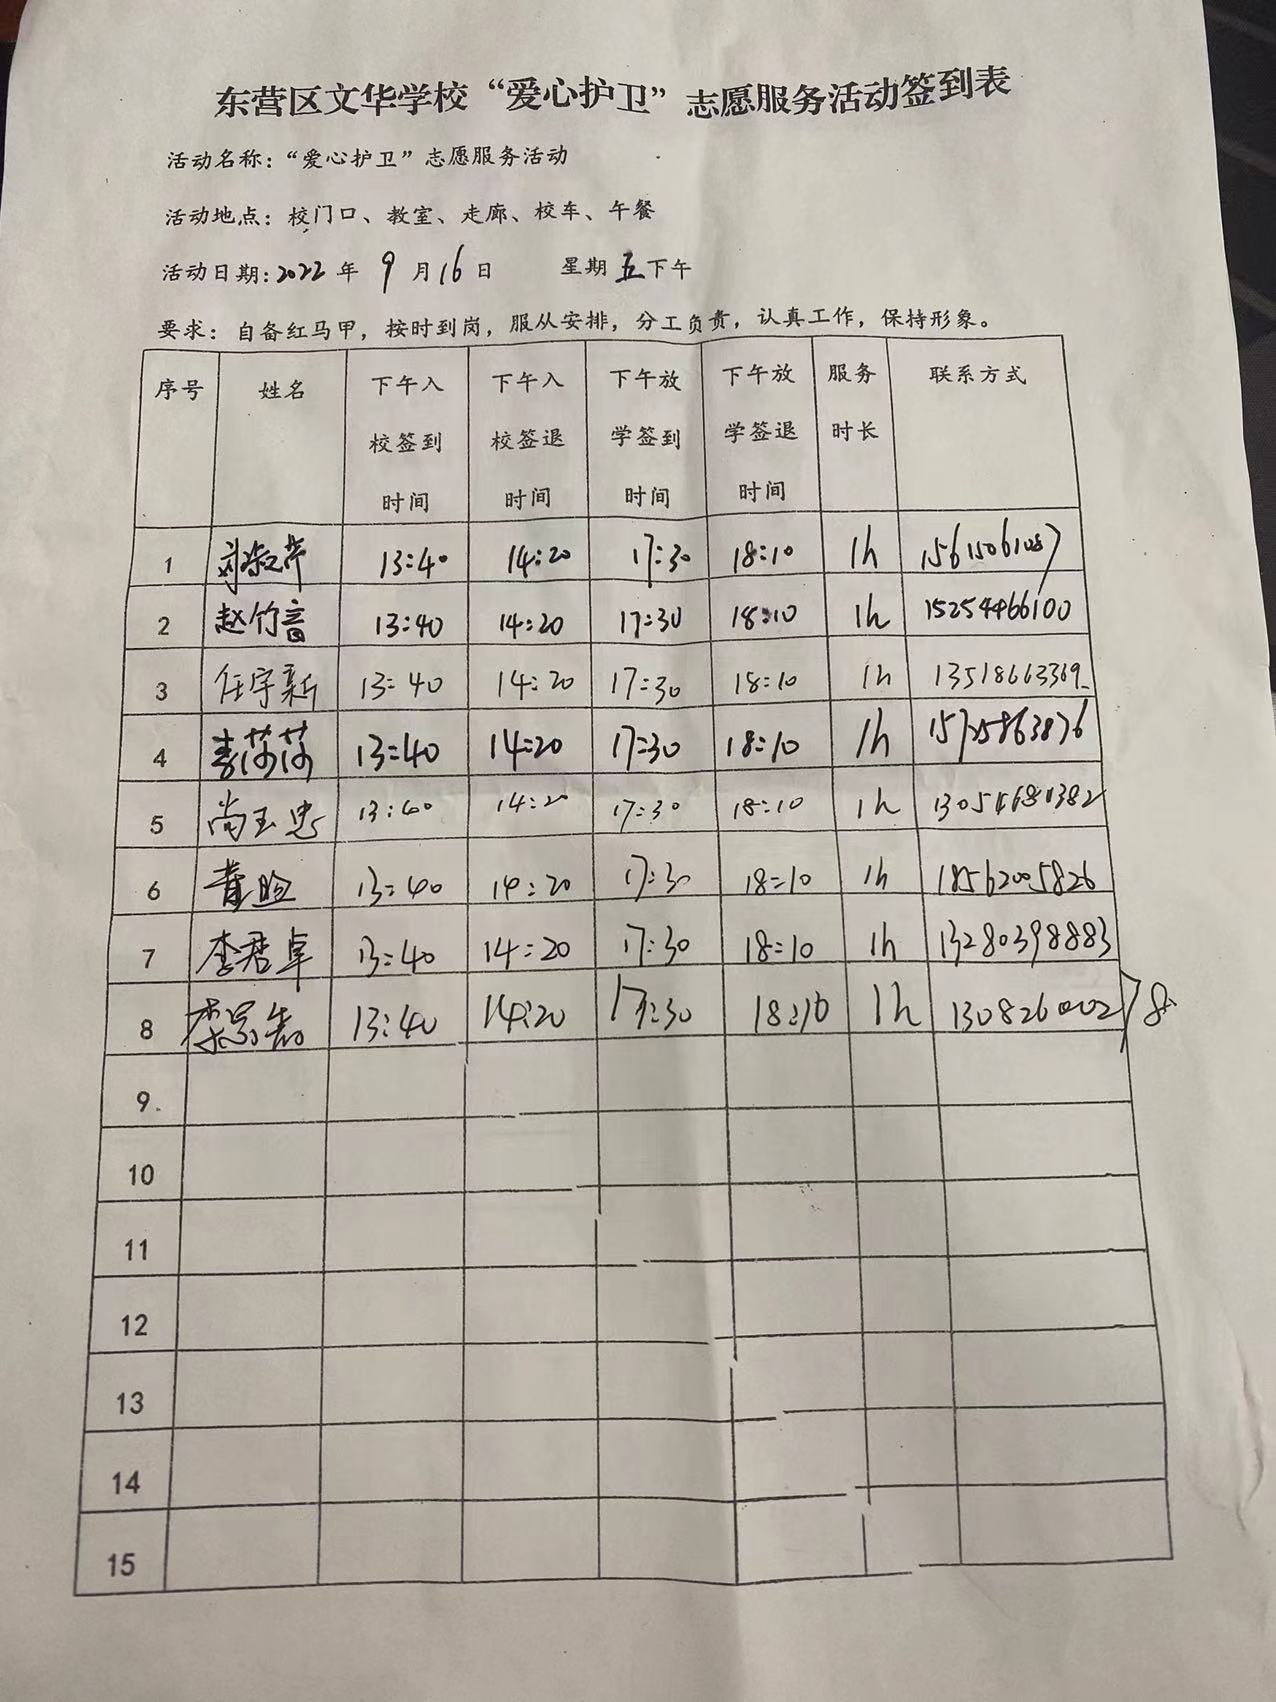 东营区文华学校“爱心护卫”志愿服务活动签到表
活动名称：“爱心护卫”志愿服务活动
活动地点：校门口、教室、走廊、校车、午餐
活动日期：2022年 9月16日 星期五下午
要求：自备红马甲，按时到岗，服从安排，分工负责，认真工作，保持形象。
序号 姓名 下午入校签到时间 下午入校签退时间 下午放学签到时间 下午放学签退时间 服务时长 联系方式
1 13:40 14:20 17:30 18:10 1h
2 赵竹音 13:40 14:20 17:30 18:10 1h 15254466100
3 任宇新 13:40 14:20 17:30 18:10 1h 13518663369
4 李莎莎 13:40 14:20 17:30 18:10 1h
5 尚玉忠 13:40 14:20 17:30 18:10 1h 13054681382
6 13:40 14:20 17:30 18:10 1h 18562005826
7 李君卓 13:40 14:20 17:30 18:10 1h 13280398883
8 13:40 14:20 17:30 18:10 1h
9
10
11
12
13
14
15